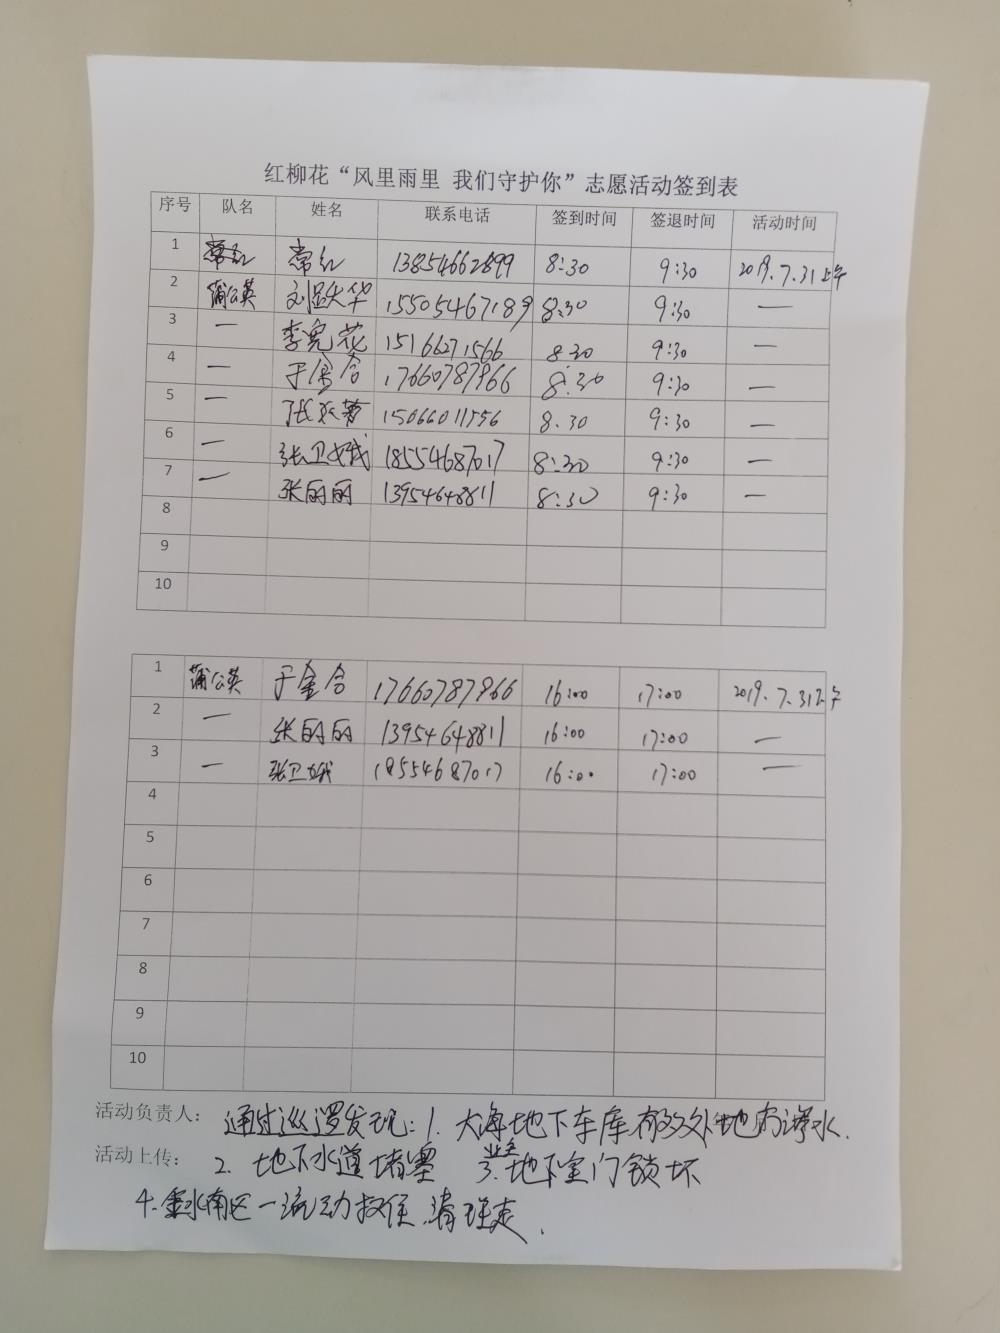 红柳花“风里雨里 我们守护你”志愿活动签到表
序号 队名 姓名 联系电话 签到时间 签退时间 活动时间
1 常红 13854662899 8:30 9:30 2019.7.31上午
2 蒲公英 15505467189 8:30 9:30 —
3 — 15166271566 8:30 9:30 —
4 — 于金合 17660787966 8:30 9:30 —
5 — 15066011556 8.30 9:30 —
6 — 张卫娥 18554687017 8:30 9:30 —
7 — 张丽丽 13954648811 8:30 9:30 —
8
9
10
1 蒲公英 于金合 17660787966 16:00 17:00 2019.7.31下午
2 — 张丽丽 13954648811 16:00 17:00 —
3 — 张卫娥 18554687017 16:00 17:00 —
4
5
6
7
8
9
10
活动负责人: 通过巡逻发现:1.大海地下车库有多处地方渗水.
活动上传: 2.地下水道堵塞 3.业主地下室门锁坏
4.金水南区一流动 清理走.